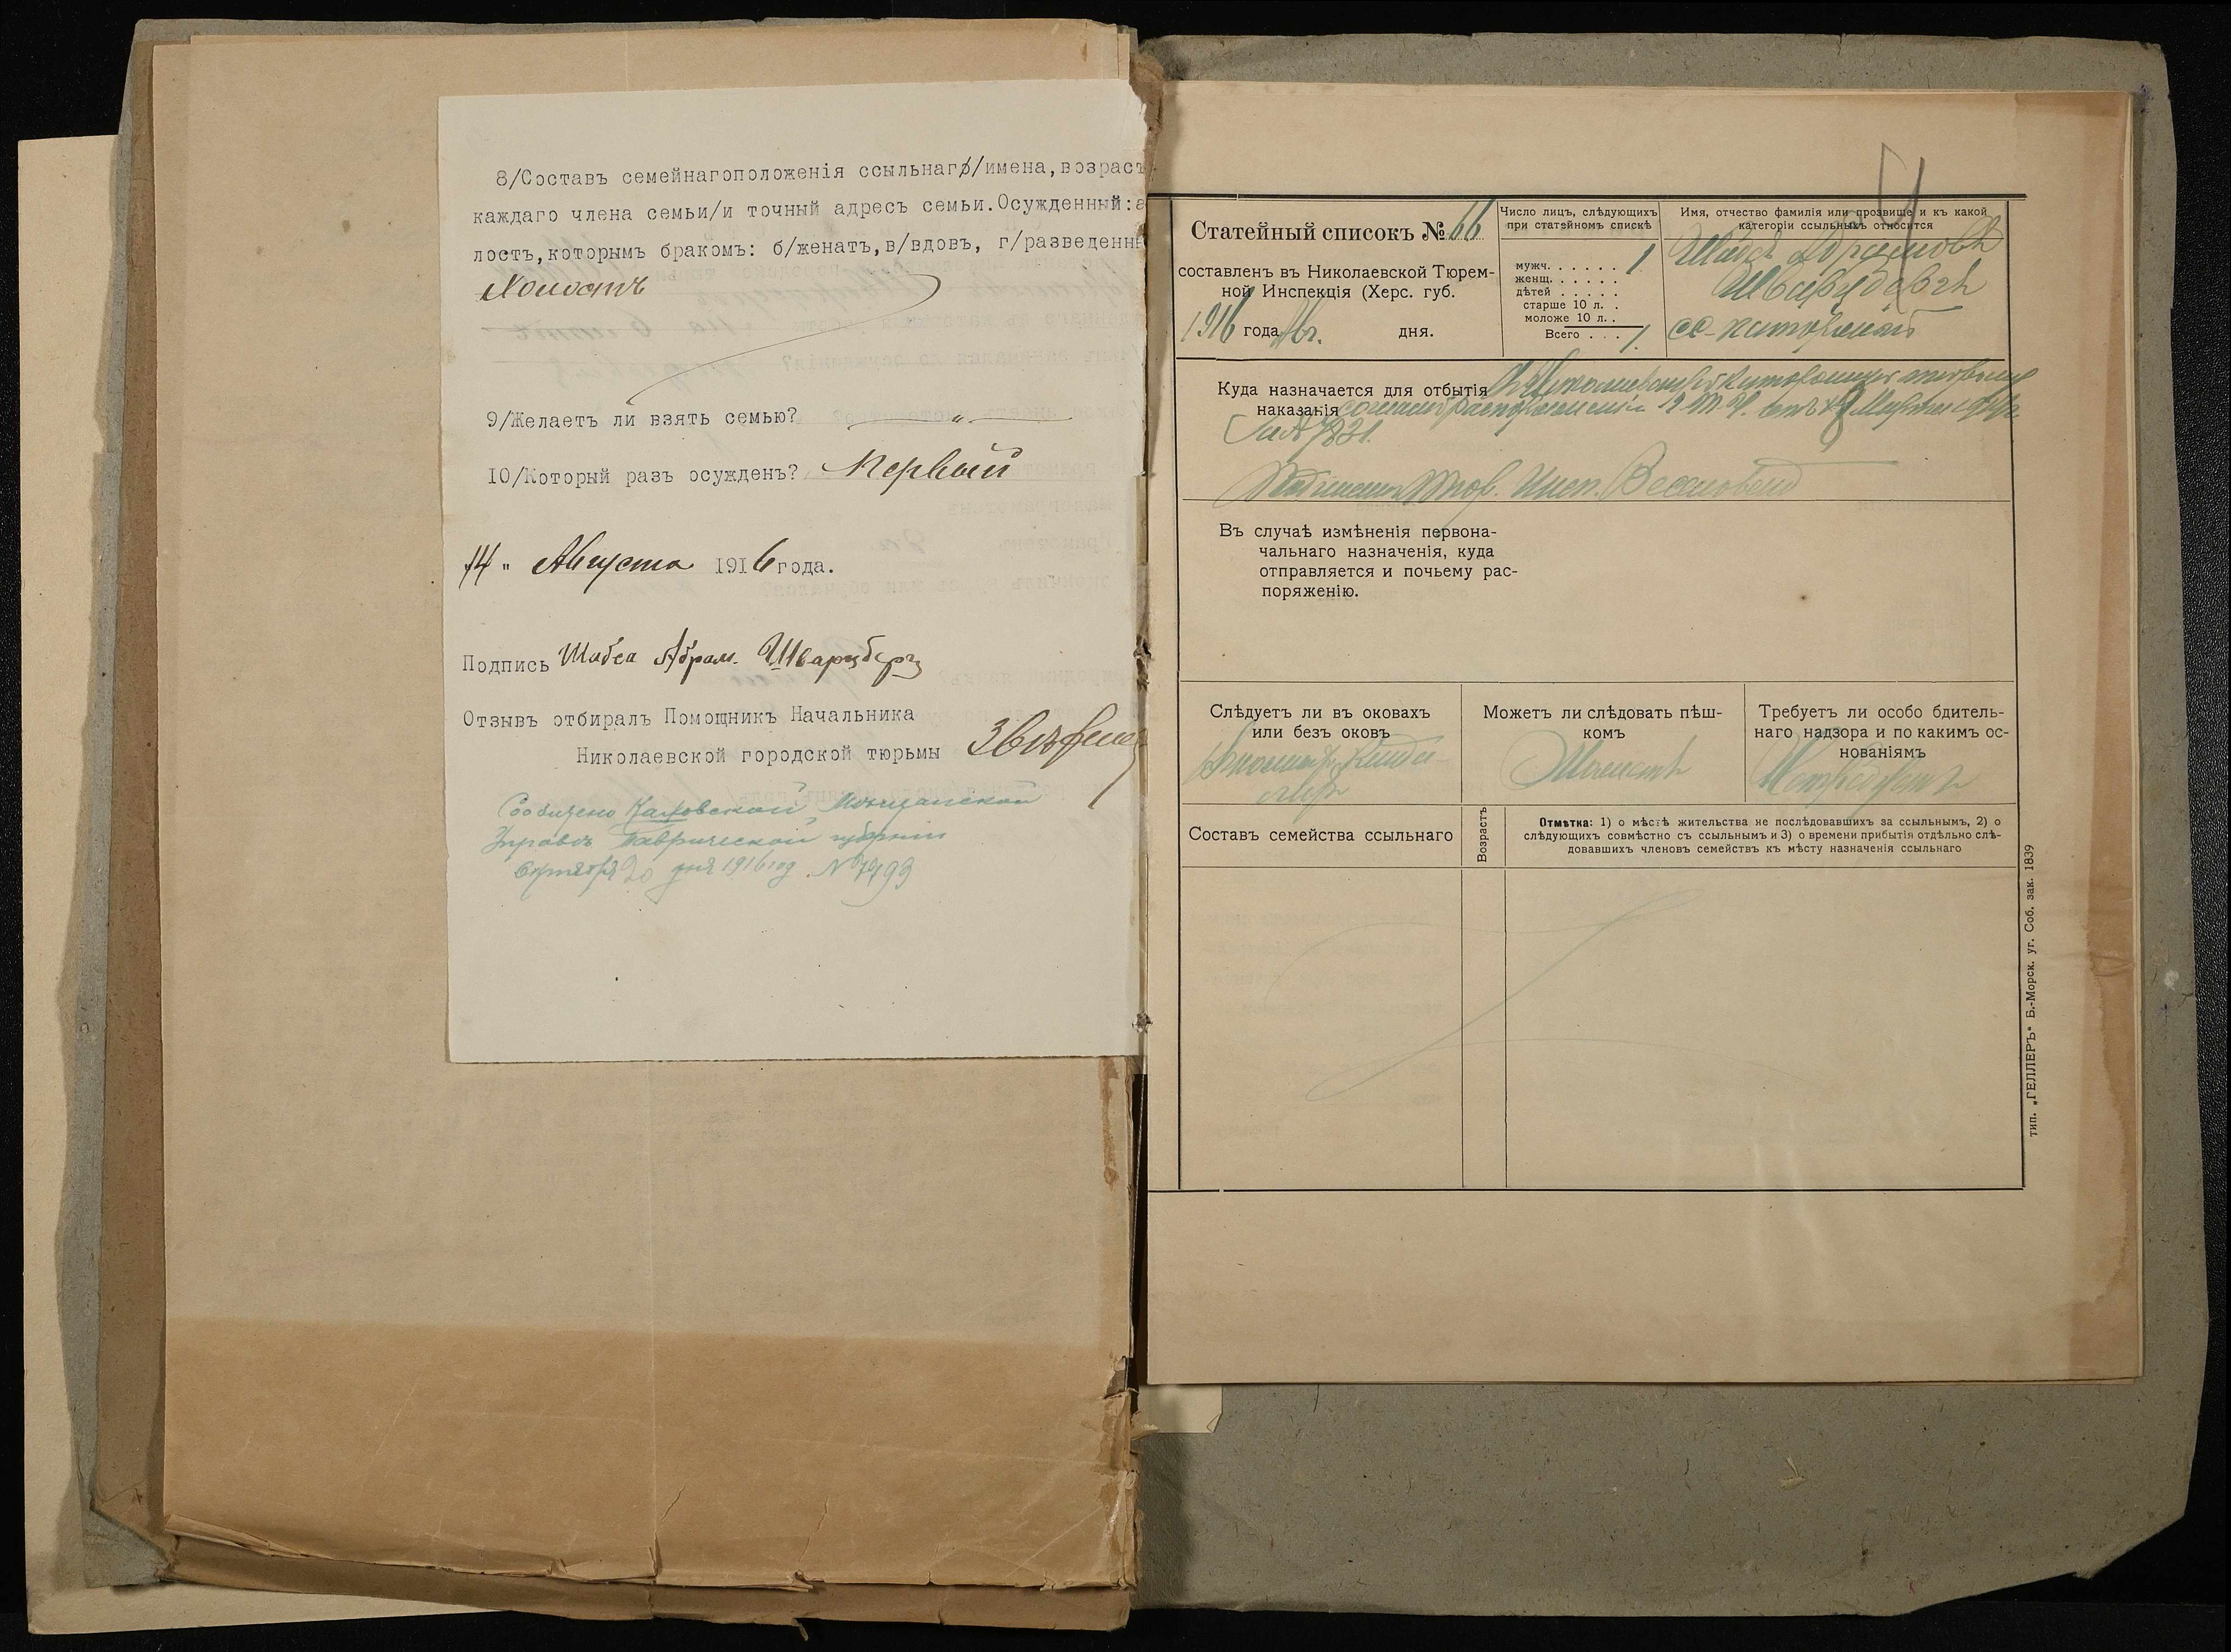 8/Составъ семейнагоположенія ссыльнаго/имена,возрастъ
каждаго члена семьи/и точный адресъ семьи.Осужденный:а
лостъ,которымъ бракомъ: б/женатъ,в/вдовъ, г/разведенн
Холостъ
9/Желаетъ ли взять семью? — " —
10/Который разъ осужденъ? Первый
14 " Августа 1916 года.
Подпись Шабса Абрам. Шварцберг
Отзывъ отбиралъ Помощникъ Начальника
Николаевской городской тюрьмы
Сообщено Каховской Мѣщанской
Управѣ Таврической губерніи
Сентября 20 дня 1916 год. № 7799
Статейный списокъ № 66
составленъ въ Николаевской Тюрем-
ной Инспекція (Херс. губ.
1916 года Авг. дня.
Число лицъ, слѣдующихъ
при статейномъ спискѣ
мужч. . . . . . . 1
женщ. . . . . . .
дѣтей . . . . .
старше 10 л. .
моложе 10 л. .
Всего . . . 1.
Имя, отчество фамилія или прозвище и къ какой
категоріи ссыльныхъ относится
Абрамовъ
Шварцбергъ
сс-каторжный
Куда назначается для отбытія
наказанія согласно распоряженія Г.Т.У. отъ Марта
за №
Подписалъ Тюр. Инсп.
Въ случаѣ измѣненія первона-
чальнаго назначенія, куда
отправляется и почьему рас-
поряженію.
Слѣдуетъ ли въ оковахъ
или безъ оковъ
Может ли слѣдовать пѣш-
комъ
Можетъ
Требуетъ ли особо бдитель-
наго надзора и по какимъ ос-
нованіямъ
Составъ семейства ссыльнаго
Возрастъ
Отмѣтка: 1) о мѣстѣ жительства не послѣдовавшихъ за ссыльнымъ, 2) о
слѣдующихъ совмѣстно съ ссыльнымъ и 3) о времени прибытія отдѣльно слѣ-
довавшихъ членовъ семействъ къ мѣсту назначенія ссыльнаго
тип. „ГЕЛЛЕРЪ" Б.-Морск. уг. Соб. зак. 1839